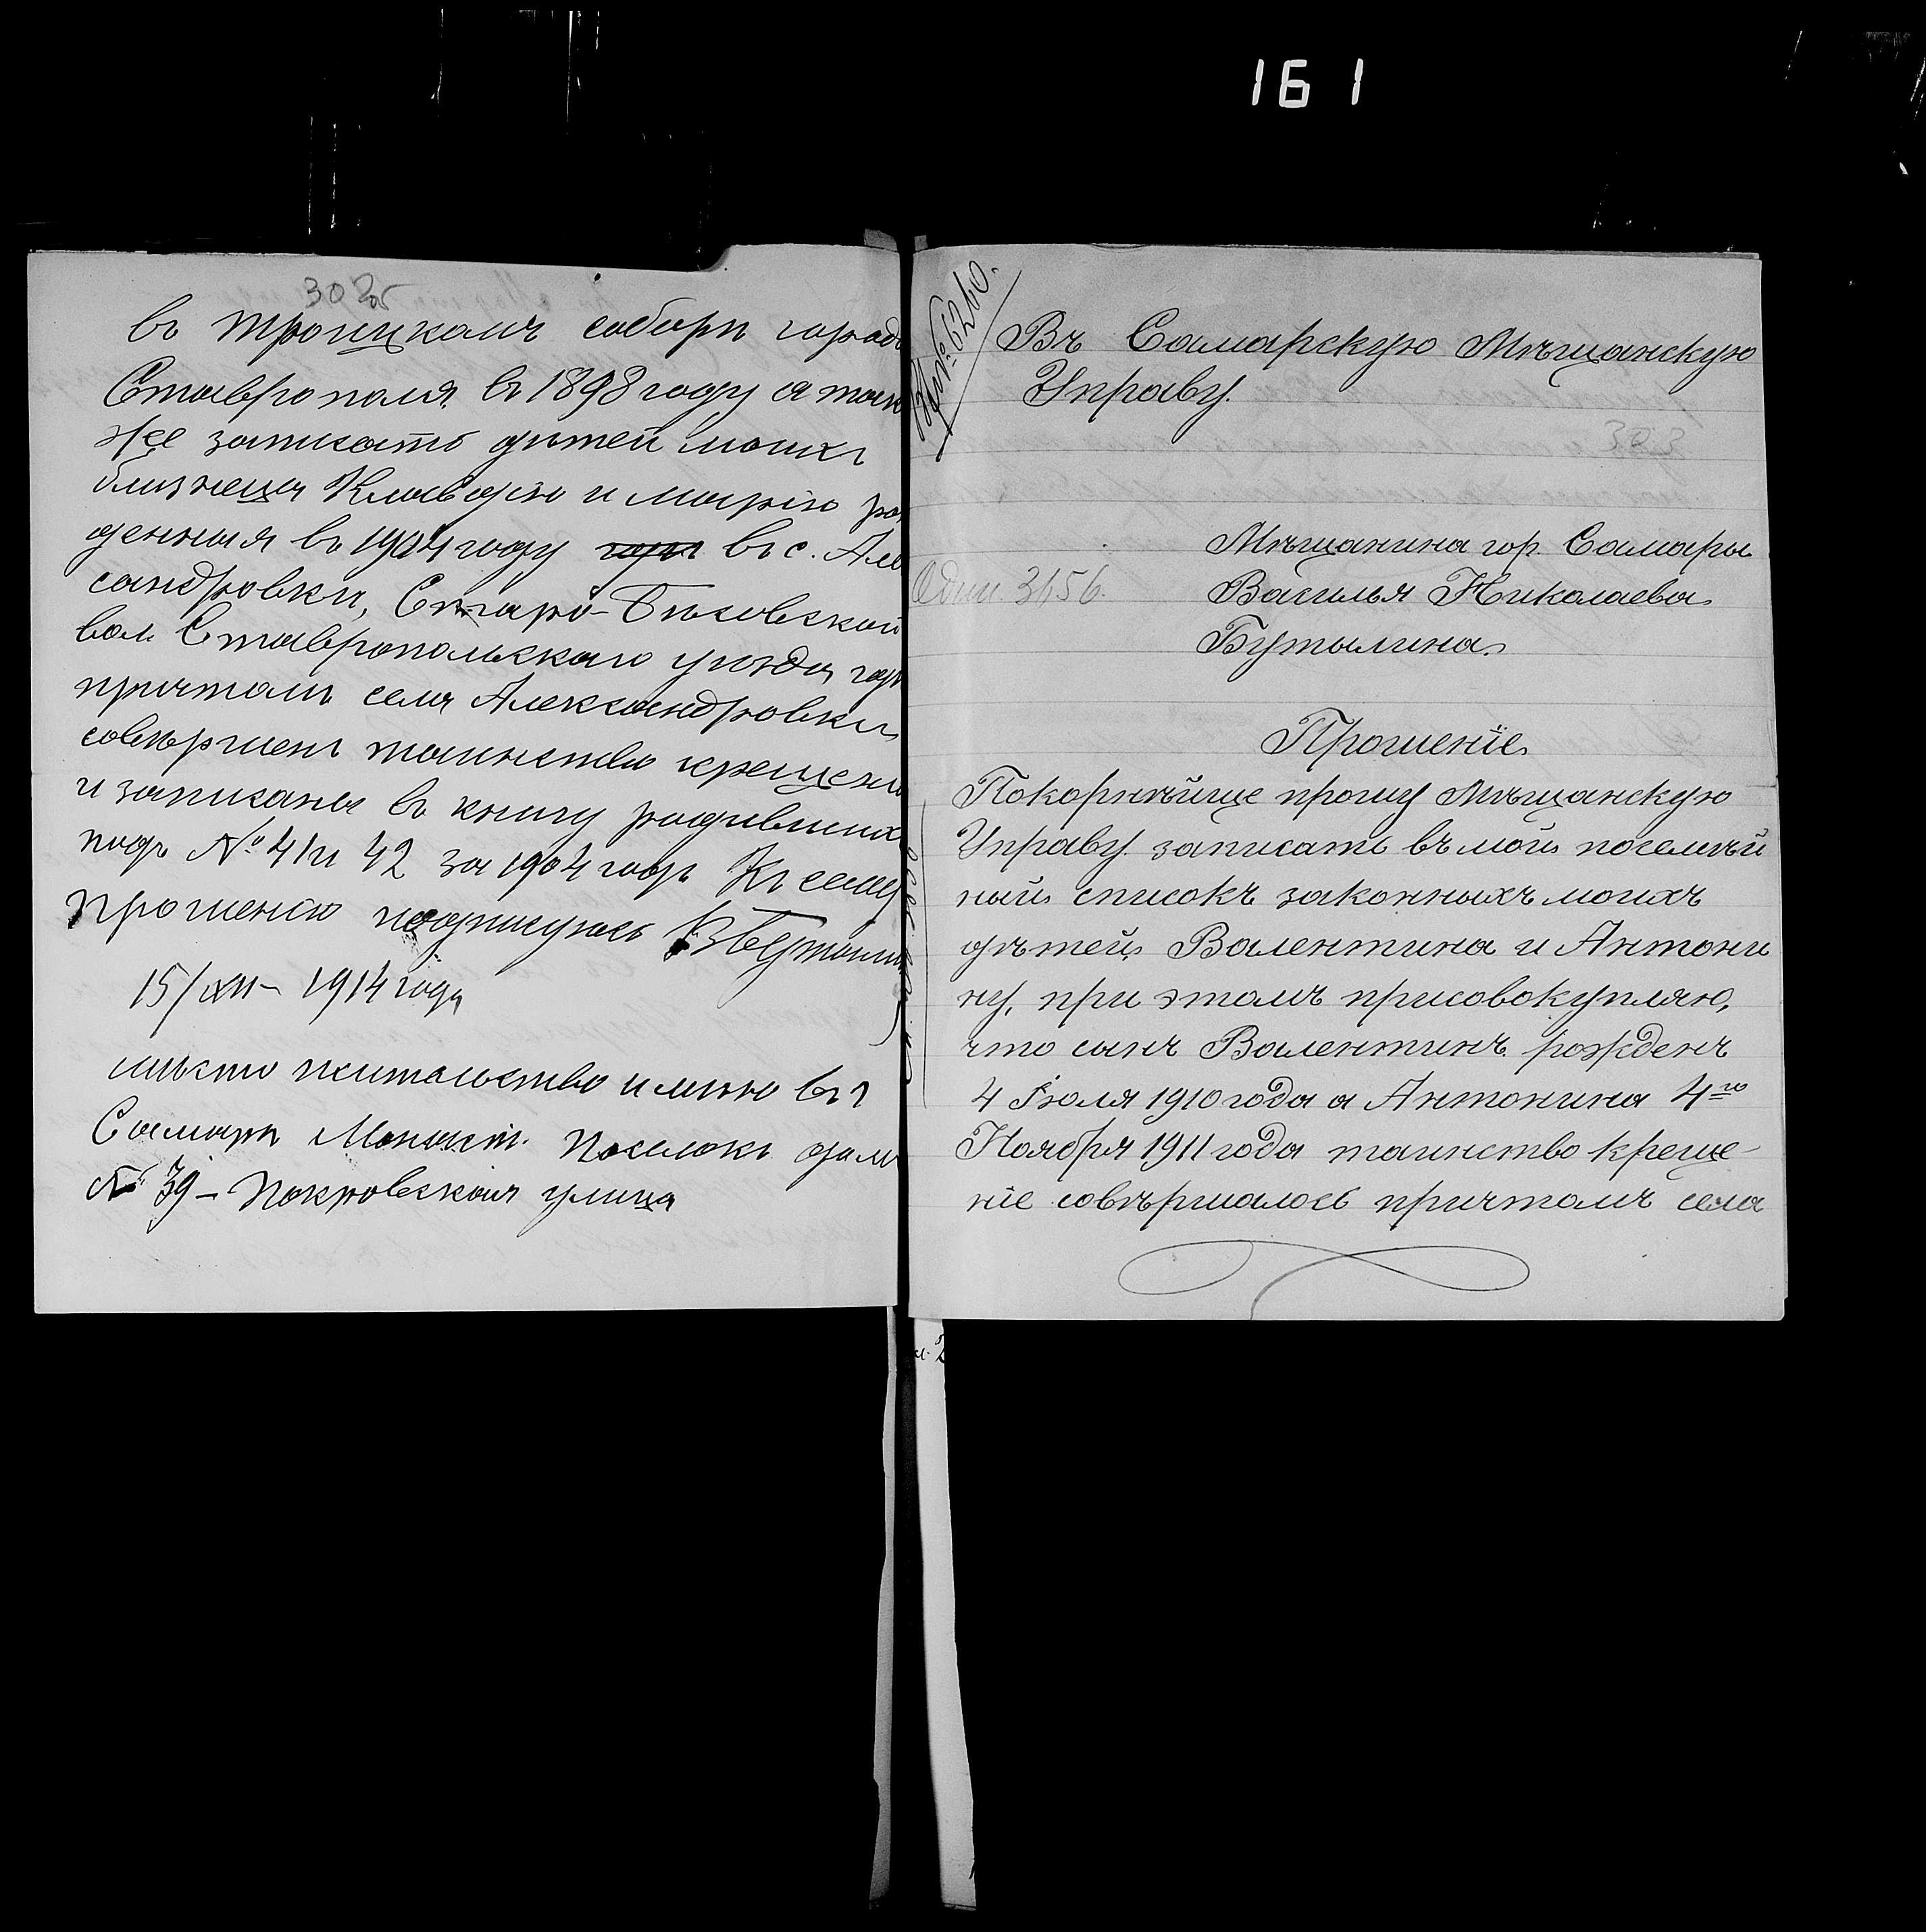 161
302об
въ троицкомъ соборѣ города
Ставрополя въ 1898 году а так
же записать дѣтей моихъ
близнеца Клавдію и Марію ро
денныя въ 1904 году въ с. Але
сандровки, Старо-Бѣсовской
вол. Ставропольскаго уѣзда гдѣ
причтомъ села Александровки
совѣршенъ таинство крещени
и записаны въ книгу родившихъ
подъ № 41 и 42 за 1904 годъ Къ сему
прошенію подписуюсь
15/XII - 1914 года
мѣсто жительство имѣю въ г
Самарѣ Монаст. Поселокъ домъ
№ 39 - Покровская улица
6260.
Въ Самарскую Мѣщанскую
Управу.
303
Мѣщанина гор. Самары
3156.
Василья Николаева
Бутылина
Прошеніе
Покорнѣйще прошу Мѣщанскую
Управу записать въ мой посемѣй
ный списокъ законныхъ моихъ
дѣтей Валентина и Антони
ну, при этомъ присовокупляю,
что сынъ Валентинъ рожденъ
4 Іюля 1910 года а Антонина 4го
Ноября 1911 года таинство креще-
ніе совѣршалось причтомъ села